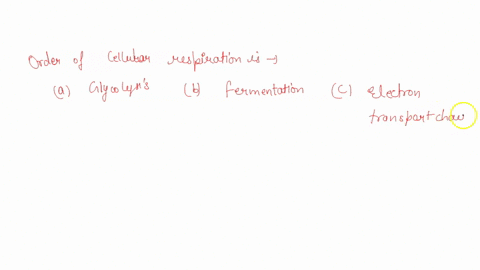 Order of Cellubar respiration is →
(a) Glycolyn's (b) fermentation (c) Electron
transport chai